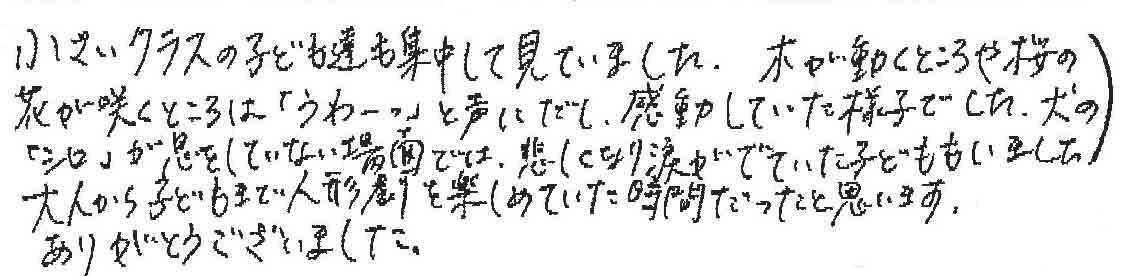 小さいクラスの子ども達も集中して見ていました。木が動くところや桜の
花が咲くところは「うわーっ」と声にだし、感動していた様子でした。犬の
「シロ」が息をしていない場面では、悲しくなり涙がでていた子どももいました
大人から子どもまで人形劇を楽しめていた時間だったと思います。
ありがとうございました。